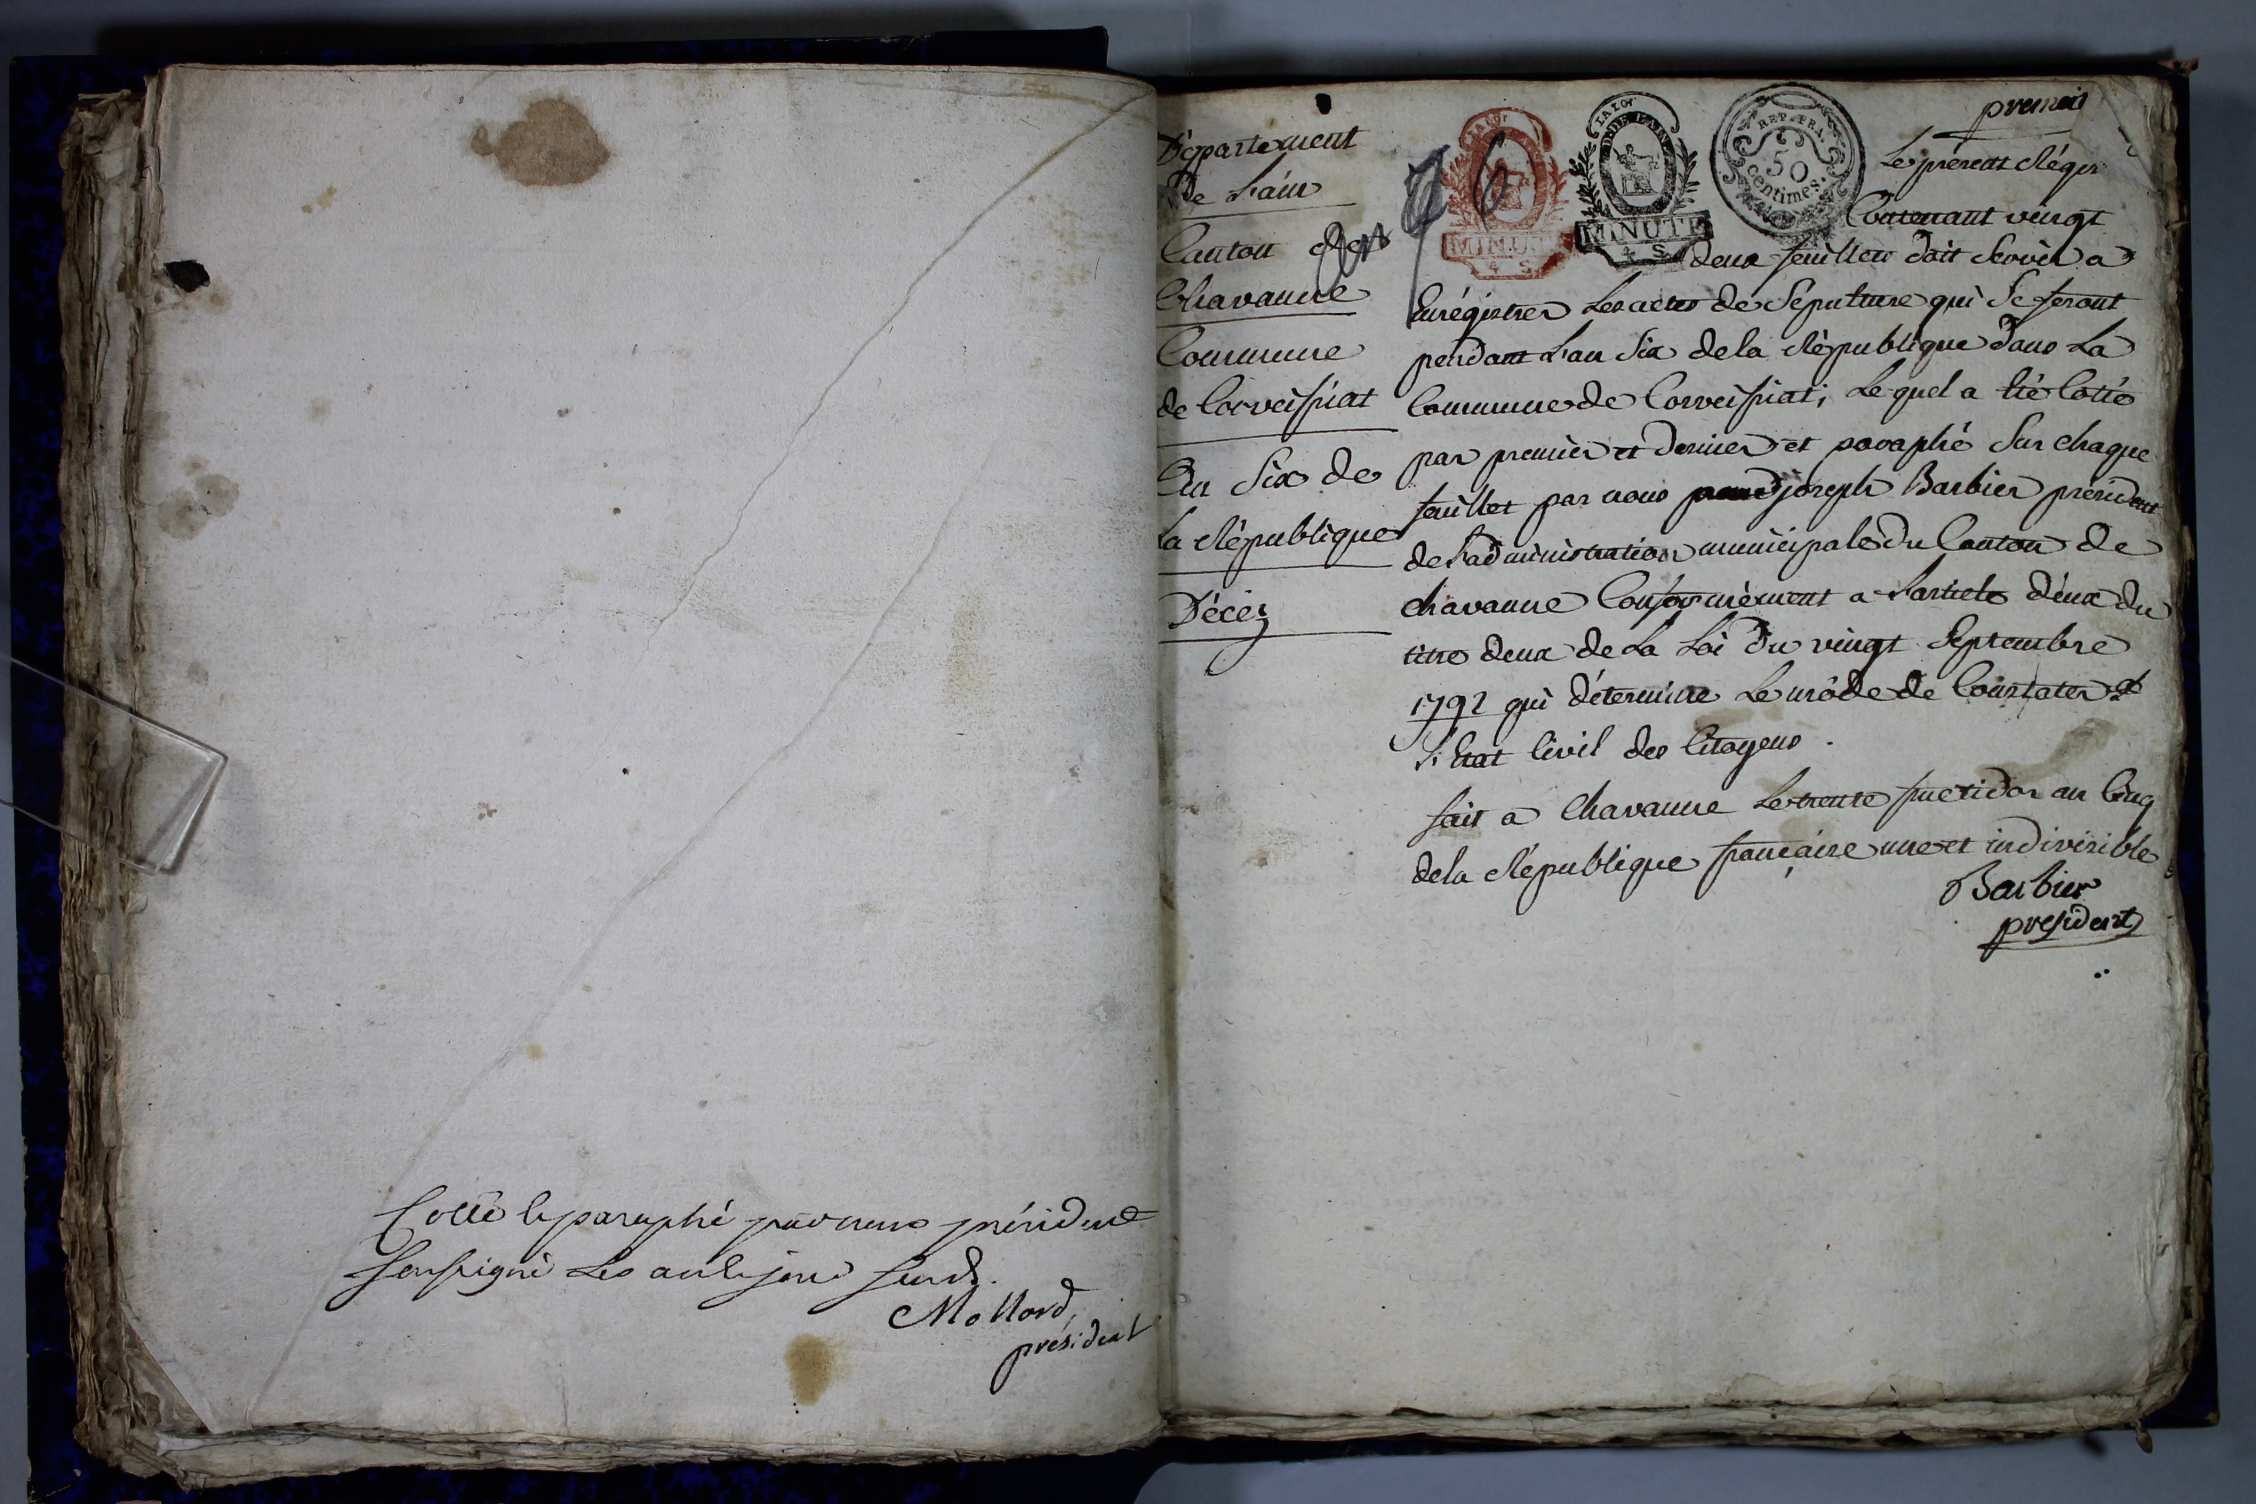 Cotté et paraphé par nous président
soussigné les an et jour susd.
Mollard,
président
premier
Département
De L'ain
Canton de
Chavanne
Commune
de Corveissiat
An Six de
La République
Décéz
an 6
LA LOI
MINUTE
4 S
LA LOI
D. DE L'AIN
MINUTE
4 S
REP. FRA.
50
centimes.
Le présent Régis
Contenant vingt
deux feuillets doit servir a
Enrégistrer Les actes de Sépulture qui Se feront
pendant L'an Six de la République dans La
Commune de Corveissiat; Lequel a été Cotté
par premier et dernier et paraphé Sur chaque
feuillet par nous joseph Barbier président
de L'administration municipale du Canton de
chavanne Conformément a L'article deux du
titre deux de La Loi du vingt Septembre
1792 qui détermine Le mode de Constater
L'Etat Civil des Citoyens.
fait a Chavanne Le trente fructidor an Cinq
de la République française une et indivisible
Barbier
president